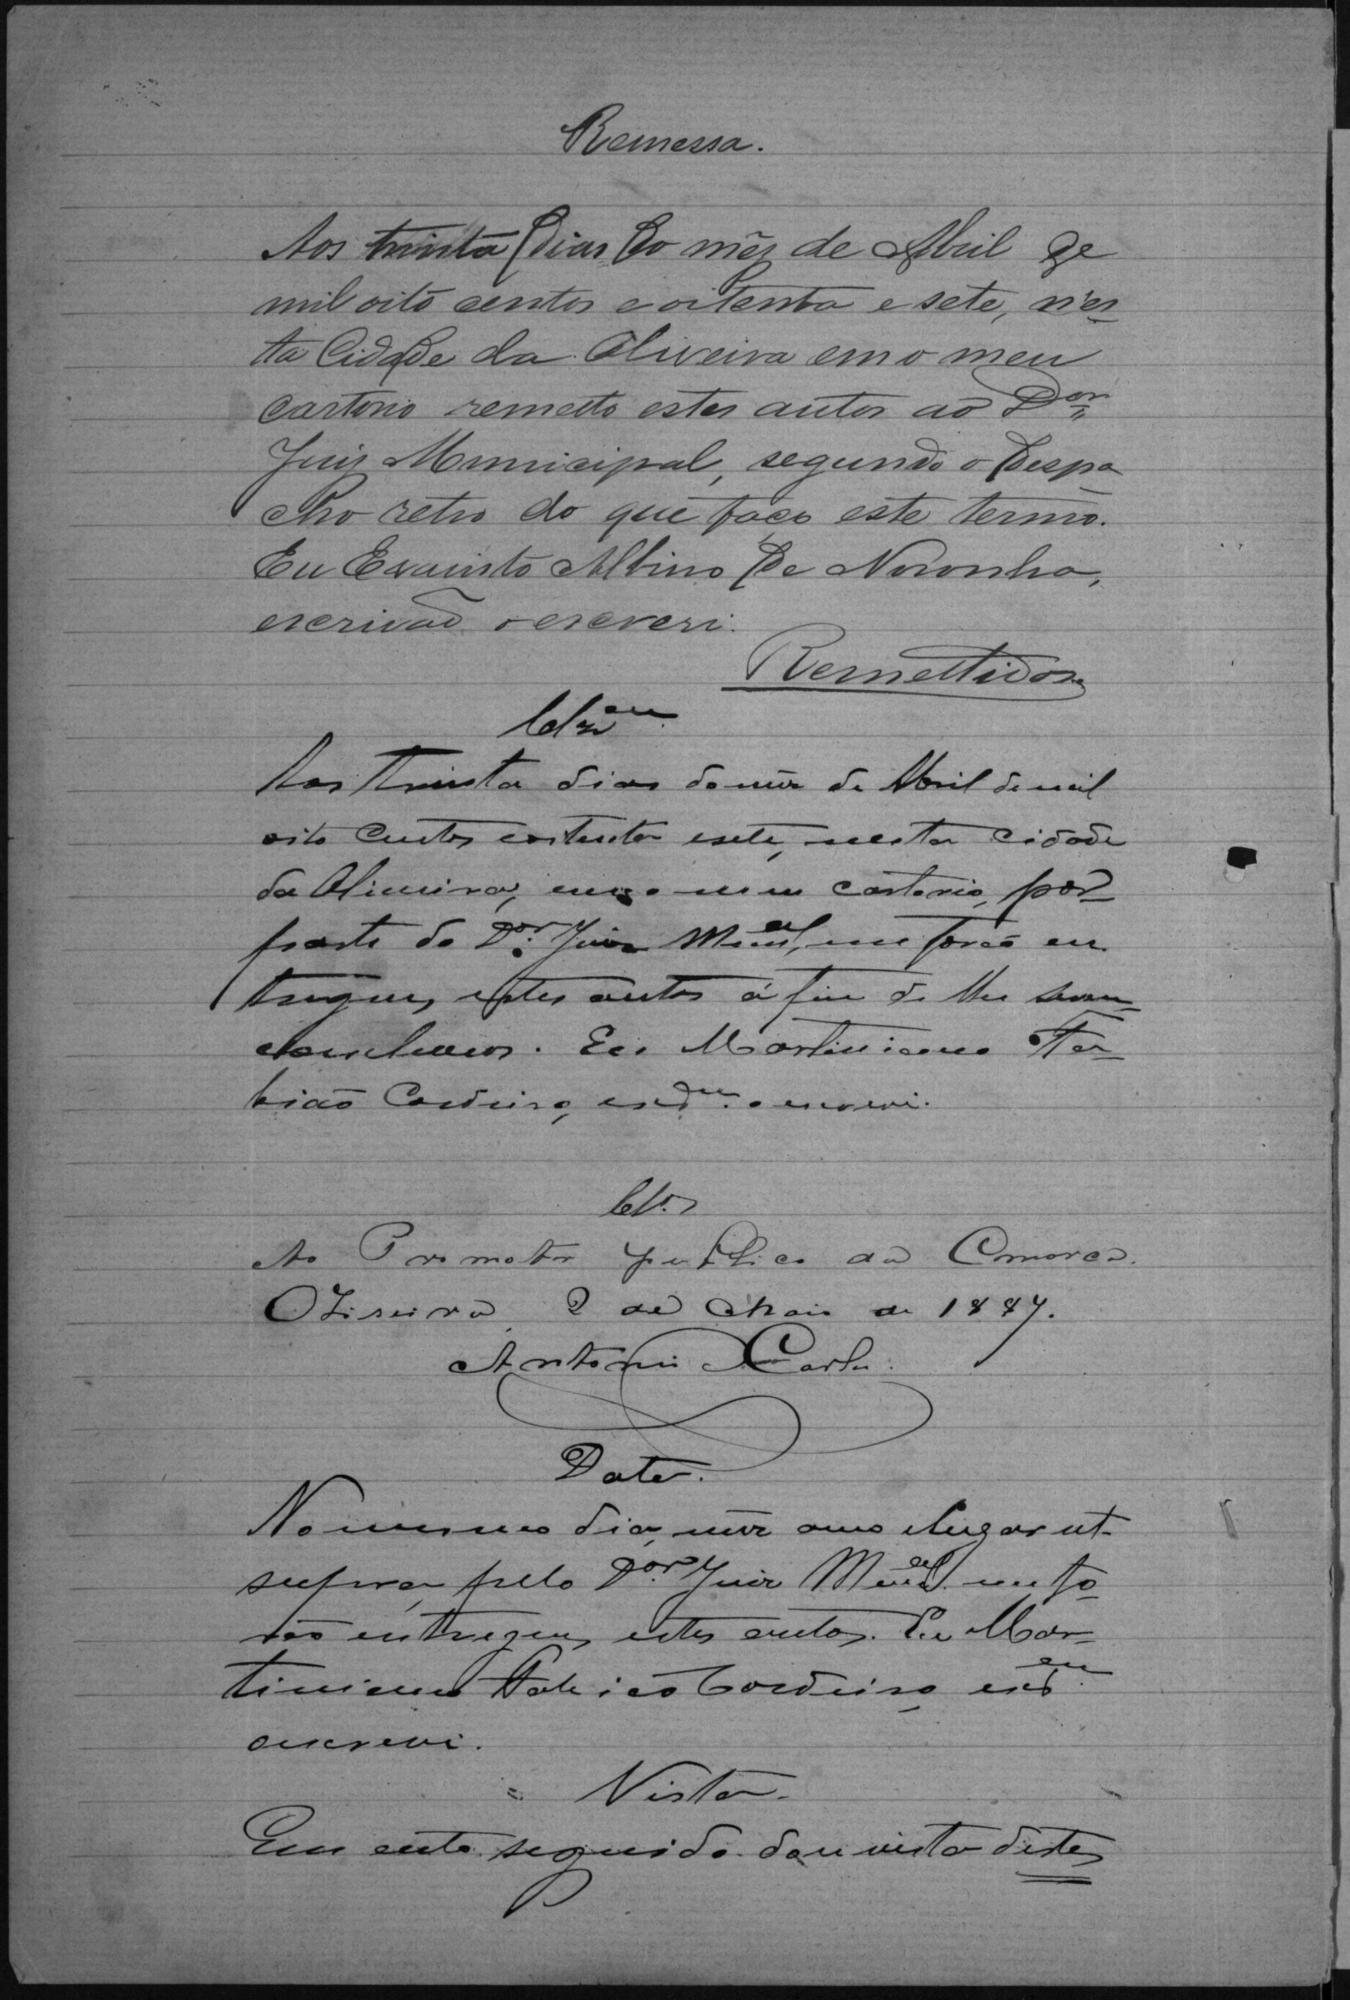 Remessa.
Aos trinta dias do mêz de Abril de
mil oito centos e oitenta e sete, n'es-
ta Cidade da Oliveira em o meu
cartorio remetto estes autos ao Dor
Juiz Municipal, segundo o despa
cho retro do que faço este termo.
Eu Albino de Noronha,
escrivão o escrevi.
Remettidos
Aos trinta dias do mez de Abril de mil
oito centos e oitenta e sete, nesta cidade
da Oliveira, em o meu cartorio, por
parte do Dor Juiz Mcal, me forão en
tregues estes autos á fim de lhe serem
conclusos. Eu Martiniano Fa-
bião Cordeiro, o escrevi.
Cls.
Ao Promotor publico da Comarca.
Oliveira, 2 de Maio de 1887.
Antonio Carlos.
Data.
No mesmo dia, mez anno e lugar ut-
supra, pelo Dor Juiz Mcal. me fo-
rão entregues estes autos. Eu Mar-
tiniano Fabião Cordeiro,
o escrevi.
Vista.
Em acto seguido dou vista destes